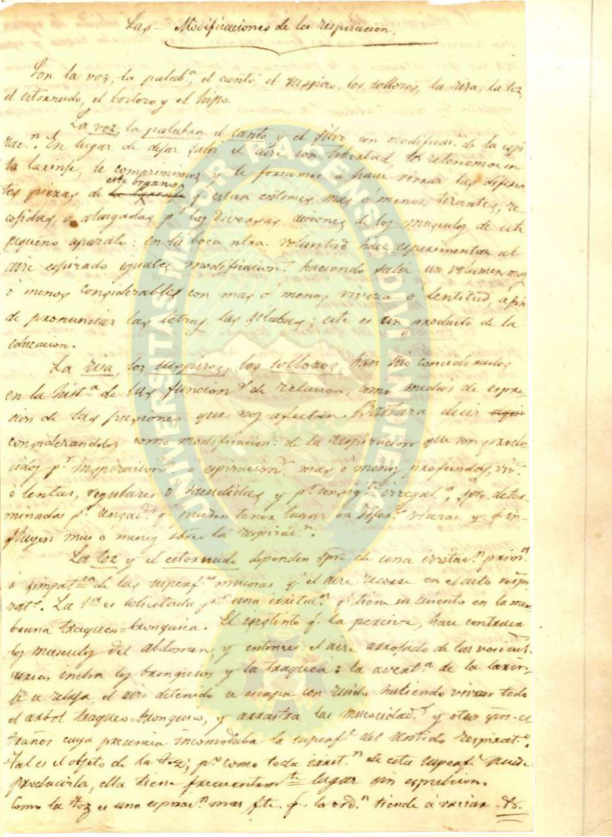 Las Modificaciones de la respiracion.
Son la voz, la palabª, el canto, el suspiro, los sollozos, la risa, la tos,
el estornudo, el bostezo y el hipo.
La voz, la palabra el canto y el silvo son modificac.s de la espi
rac.n. En lugar de dejar salir el aire con libertad, lo retenemos en
la laringe le comprimimos y le forzamos a hacer vivrar las diferen
tes piezas de este organo y estan entonces mas o menos tirantes, re
cogidas, o alargadas p.r las diversas acciones de los musculos de este
pequeño aparato: en la boca ntra. voluntad hace esperimentar al
aire espirado iguales modificacion.s haciendo salir un volumen mas
ó menos considerables con mas ó menos viveza o lentitud, a fin
de pronunciar las letras las silabas; este es un producto de la
educacion.
La risa, los suspiros, los sollozos, han sido considerados
en la hist.ª de las funcion.s de relacion, como medios de espre
sion de las pasiones que nos afectan.
considerandolos como modificacion.s de la respiracion que son produ
cidos p.r inspiracion.s espiracion.s mas o menos profundas, vivas
o lentas, regulares o
minadas p.r y pueden tener lugar en difer.s
fluyen mas o menos sobre la respirac.n.
La tos y el estornudo dependen spre. de una irritac.n prim.ª
ó simpat.ca de las superf.s mucosas y el aire recorre en el acto respi
rat.o. La 1.ª es solicitada p.r una irritac.n q. tiene su asiento en la mem
brana traqueo=bronquica. El q. la percive, hace contraer
los musculos del abdomen, y entonces el aire arrojado de las vesicul
incha los bronquios y la traquea: la avert.ª de la larin-
ge se relaja, el aire detenido se escapa con ruido haciendo vivrar todo
el arbol traqueo-bronquico, y arrastra las mucosidad.s y otros
traños cuya presencia incomodaba la superf.e del sentido respirat.o.
Tal es el objeto de la tos; p.o como toda irrit.n de esta superf.e puede
producirla, ella tiene frecuentem.te lugar sin espulsion.
Como la tos es una espirac.n mas fte. q. la ord.ª tiende á variar &.